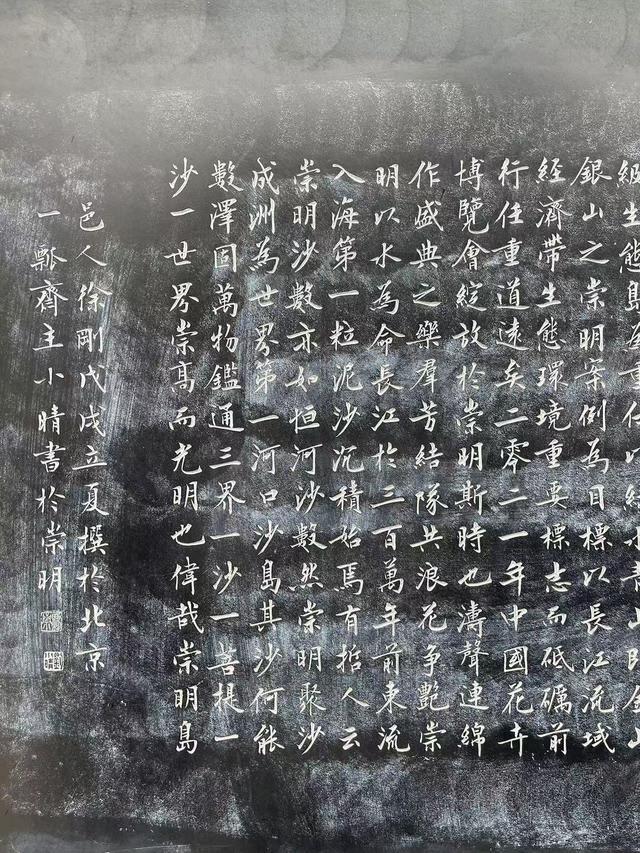 級生態島為重任以綠水青山即金山
銀山之崇明案例為目標以長江流域
經濟帶生態環境重要標志而砥礪前
行任重道遠矣二零二一年中國花卉
博覽會綻放於崇明斯時也濤聲連綿
作盛典之樂羣芳結隊共浪花爭艷崇
明以水為命長江於三百萬年前東流
入海第一粒泥沙沉積始焉有哲人云
崇明沙數亦如恒河沙數然崇明聚沙
成洲為世界第一河口沙島其沙何能
數澤固萬物鑑通三界一沙一菩提一
沙一世界崇高而光明也偉哉崇明島
邑人徐剛戊戌立夏撰於北京
一瓢齋主小晴書於崇明